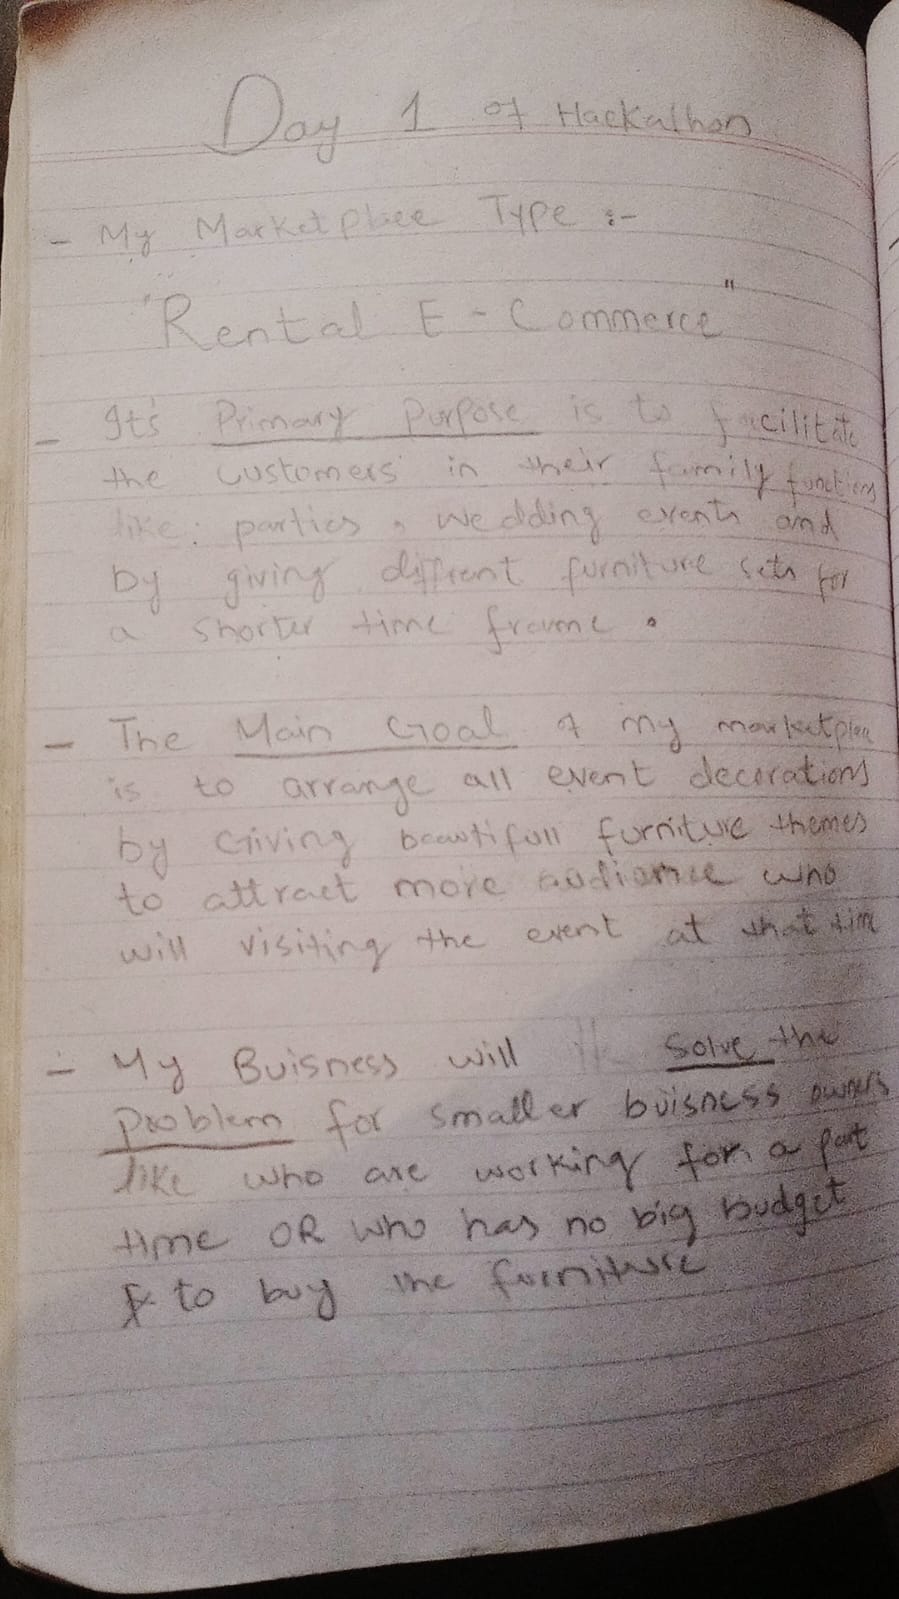 Day 1 of Hackathon
- My Marketplace Type :-
"Rental E-Commerce"
- It's Primary Purpose is to facilitate
the customers in their family functions
like: parties, wedding events and
by giving diffrent furniture sets for
a shorter time frame.
- The Main Goal of my marketplace
is to arrange all event decorations
by Giving beautifull furniture themes
to attract more audiance who
will visiting the event at that time
- My Buisness will solve the
problem for smaller buisness owners
like who are working for a part
time OR who has no big budget
to buy the furniture